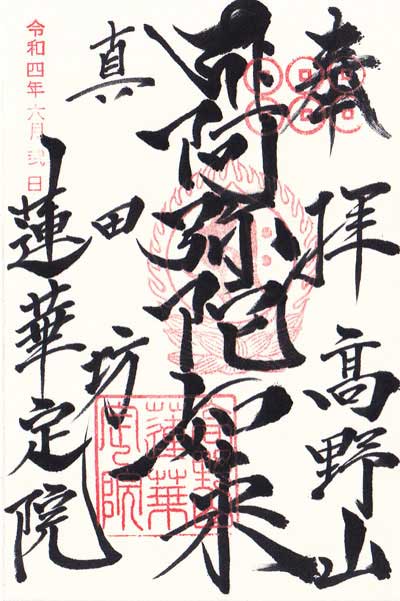 奉拝 高野山
阿弥陀如来
真田坊
蓮華定院
令和四年六月弐日
蓮華
定院